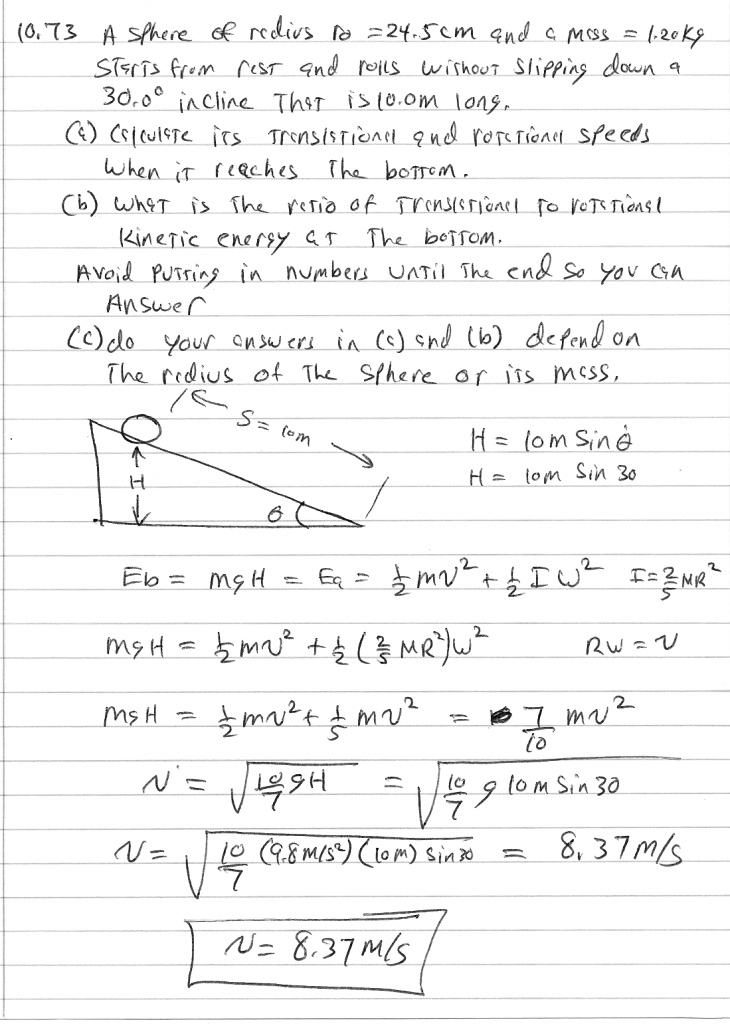 10.73 A sphere of radius r₀ = 24.5 cm and a mass = 1.20 kg
starts from rest and rolls without slipping down a
30.0° incline that is 10.0m long.
(a) Calculate its translational and rotational speeds
when it reaches the bottom.
(b) What is the ratio of translational to rotational
kinetic energy at the bottom.
Avoid putting in numbers until the end so you can
Answer
(c) do your answers in (a) and (b) depend on
the radius of the sphere or its mass.
S = 10m
H
θ
H = 10m Sin θ
H = 10m Sin 30
Eb = mgH = Ea = ½mv² + ½Iω² I = 2/5 MR²
mgH = ½mv² + ½(2/5 MR²)ω² Rω = v
mgH = ½mv² + 1/5 mv² = 7/10 mv²
v = √(10/7 gH) = √(10/7 g 10m Sin 30)
v = √(10/7 (9.8 m/s²)(10m) Sin 30) = 8.37 m/s
v = 8.37 m/s